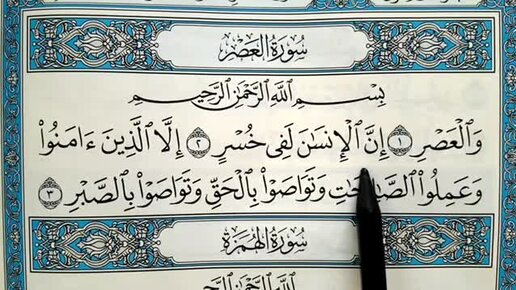 سُورَةُ العَصْرِ
بِسْمِ ٱللَّهِ ٱلرَّحْمَٰنِ ٱلرَّحِيمِ
وَٱلْعَصْرِ ١ إِنَّ ٱلْإِنسَٰنَ لَفِى خُسْرٍ ٢ إِلَّا ٱلَّذِينَ ءَامَنُوا۟
وَعَمِلُوا۟ ٱلصَّٰلِحَٰتِ وَتَوَاصَوْا۟ بِٱلْحَقِّ وَتَوَاصَوْا۟ بِٱلصَّبْرِ ٣
سُورَةُ الهُمَزَةِ
ٱللَّهِ ٱلرَّحْمَٰنِ